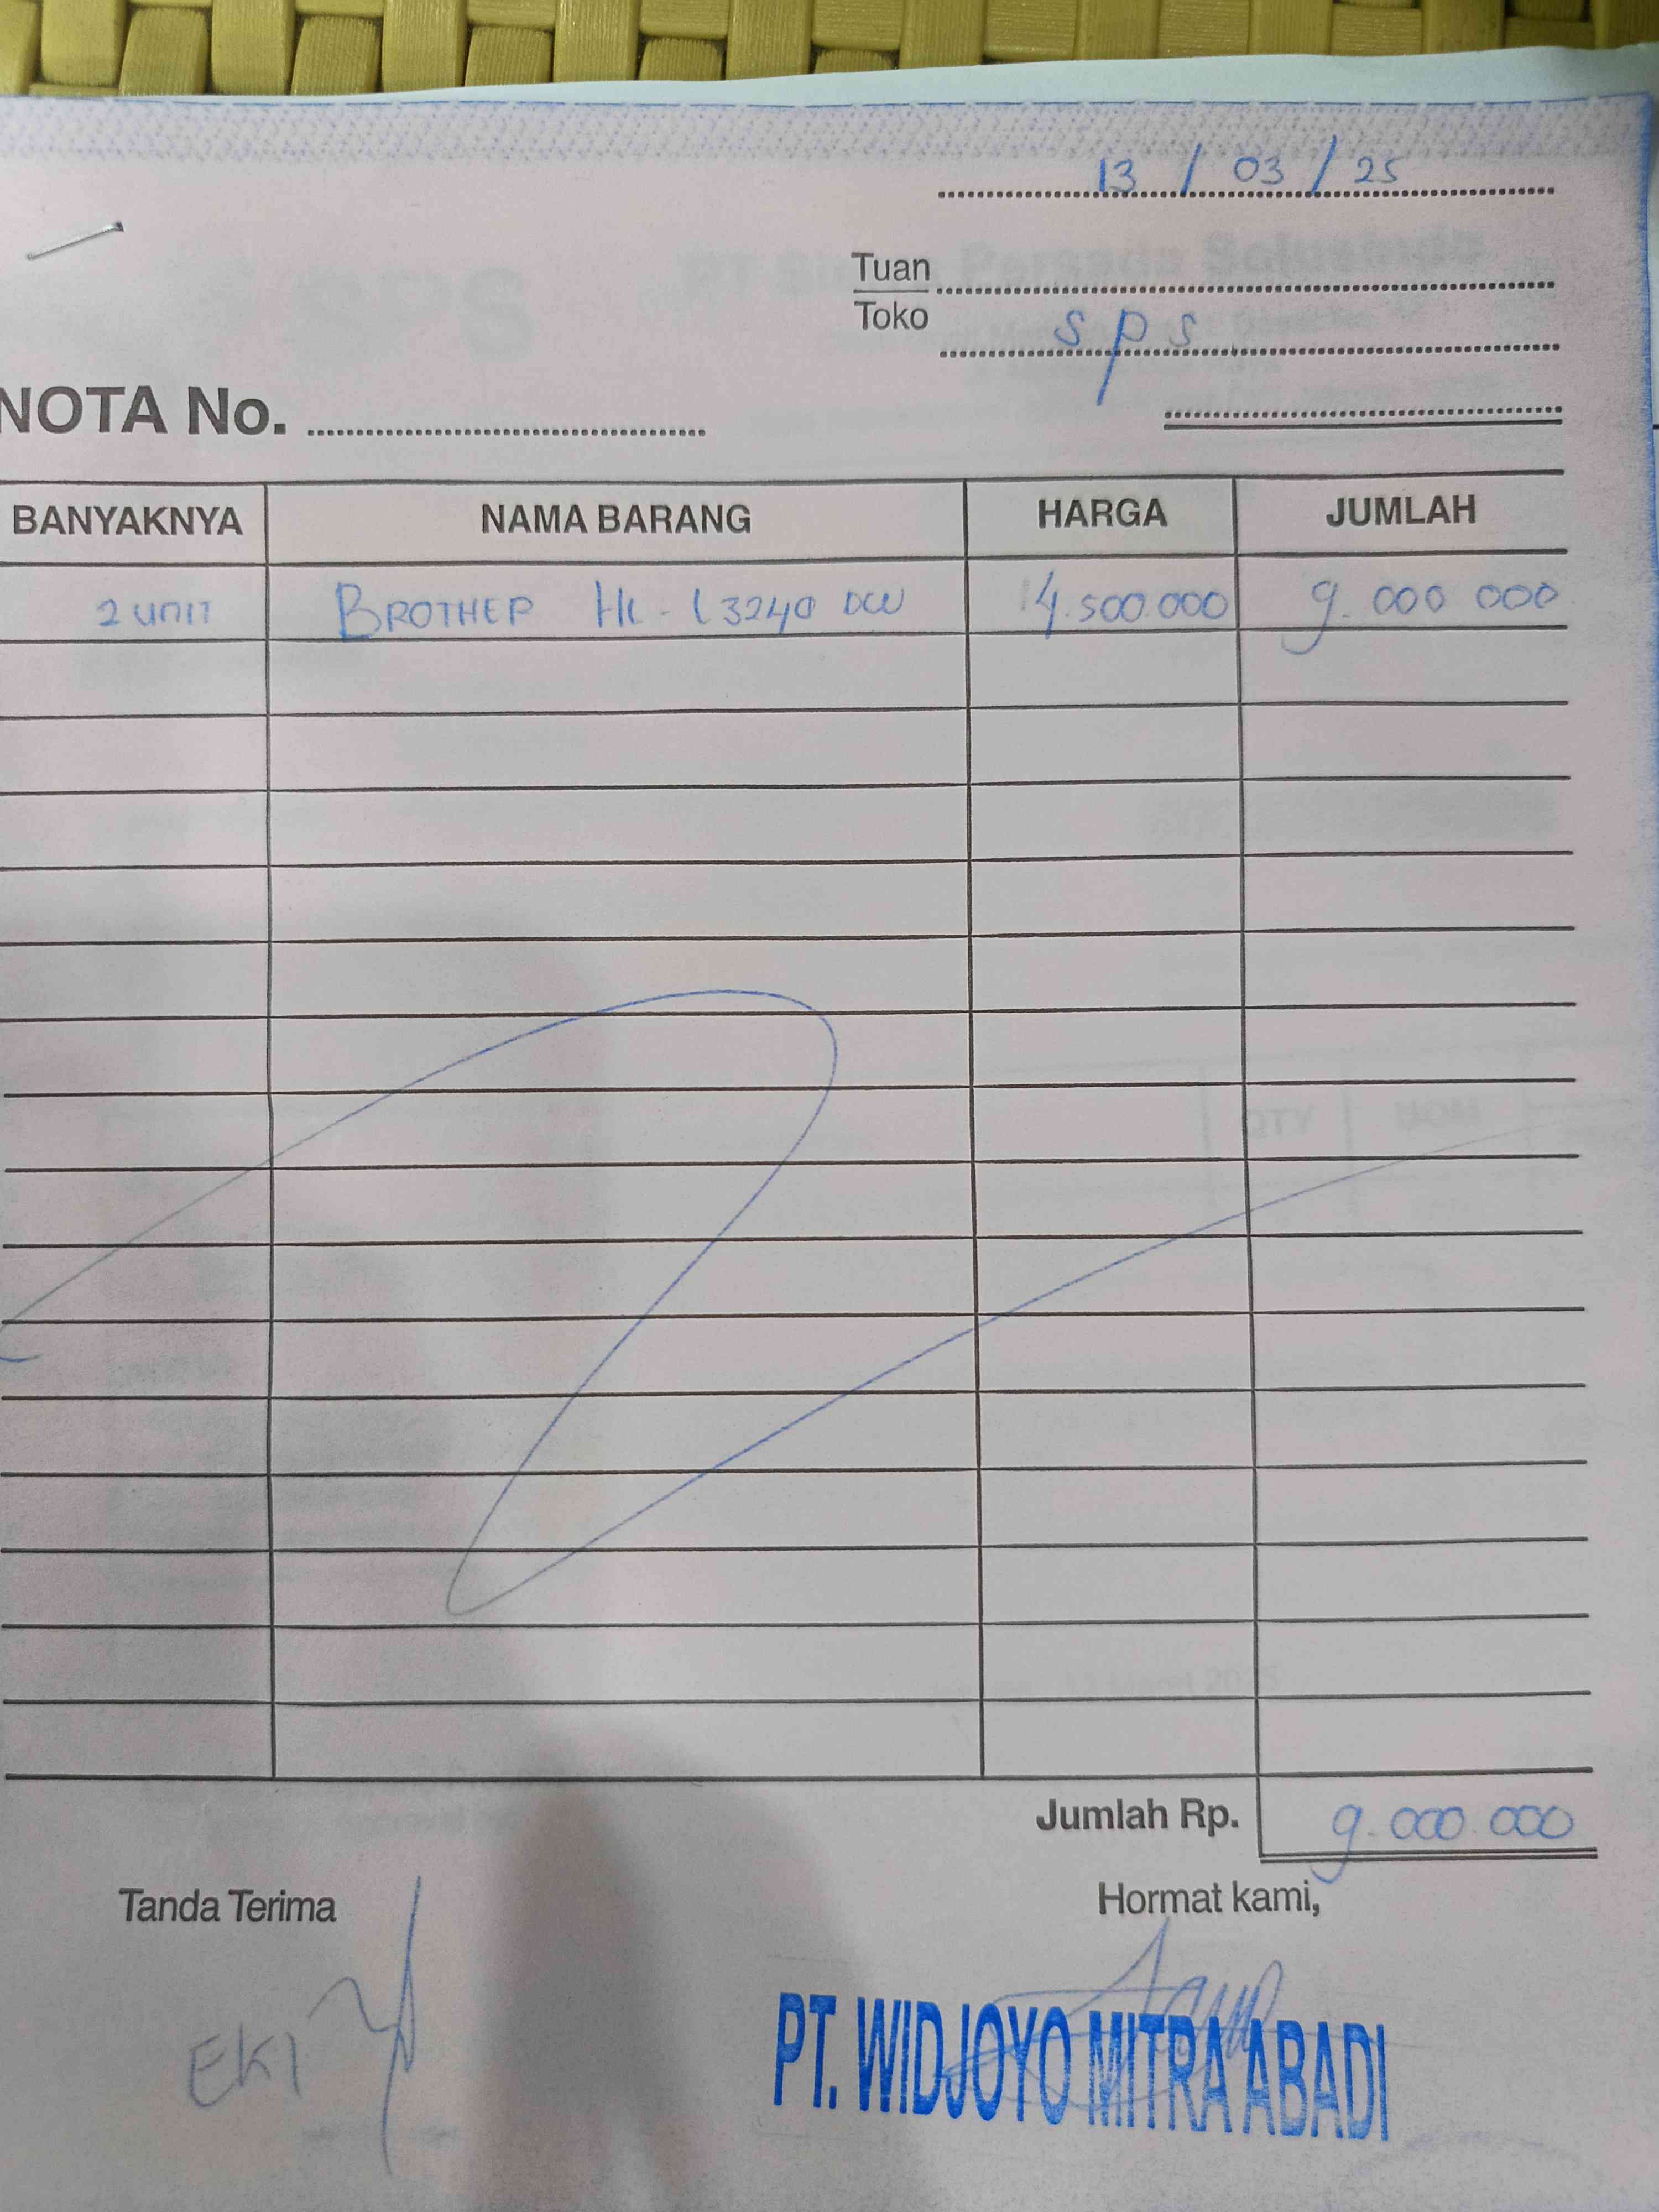 13 / 03 / 25
Tuan
Toko
sps
NOTA No.
BANYAKNYA NAMA BARANG HARGA JUMLAH
2 UNIT BROTHER HL-L3240 DCW 4.500.000 9.000 000
Jumlah Rp. 9.000.000
Tanda Terima Hormat kami,
EKI
PT. WIDJOYO MITRA ABADI